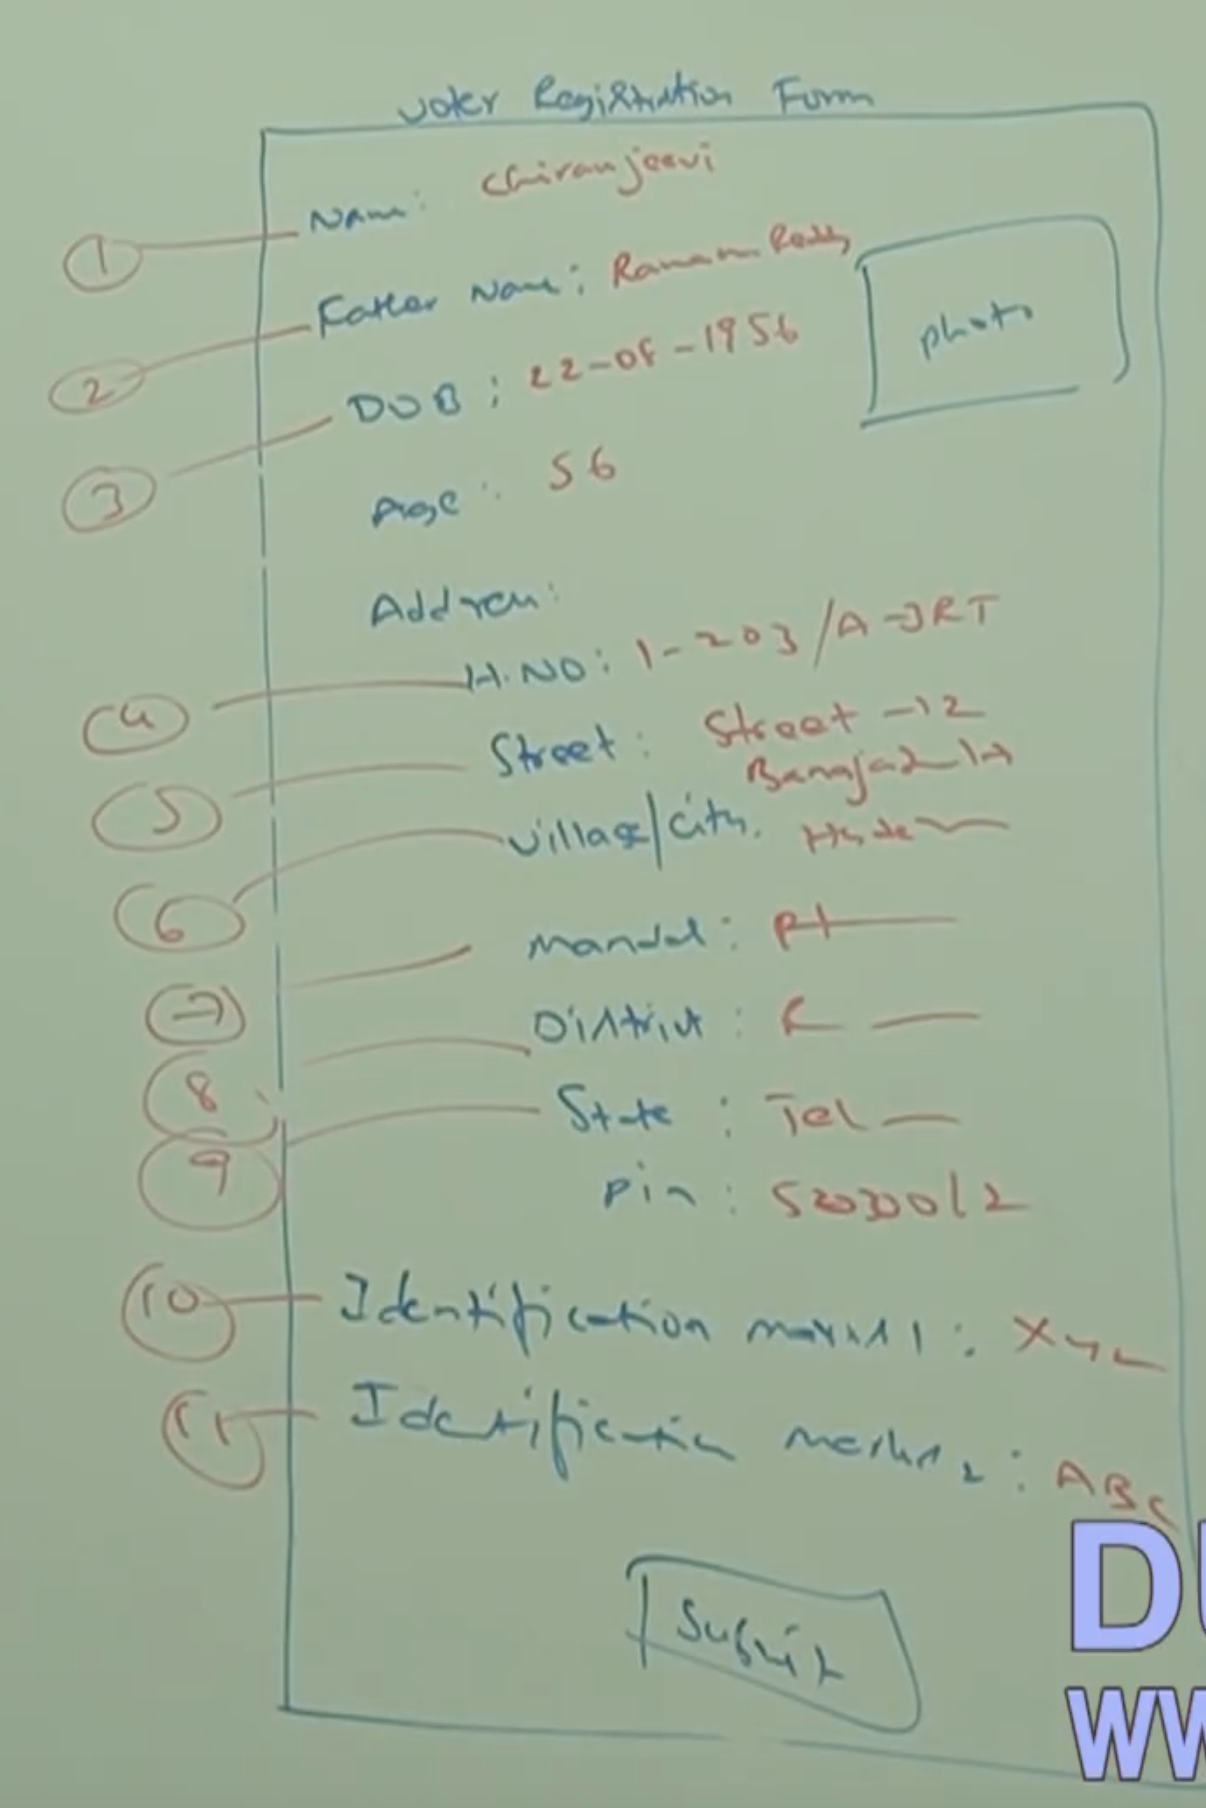 Voter Registration Form
① Name: Chiranjeevi
② Father Name: Ramana Reddy
photo
③ DOB: 22-08-1956
Age: 56
Address:
④ H.NO: 1-203/A-JRT
⑤ Street: Street-12
⑥ Village/City.
⑦ Mandal:
⑧ District: R
⑨ State: Tel
Pin:
⑩ Identification marks 1: XYZ
⑪ Identification marks 2: ABC
Submit
DU
WW